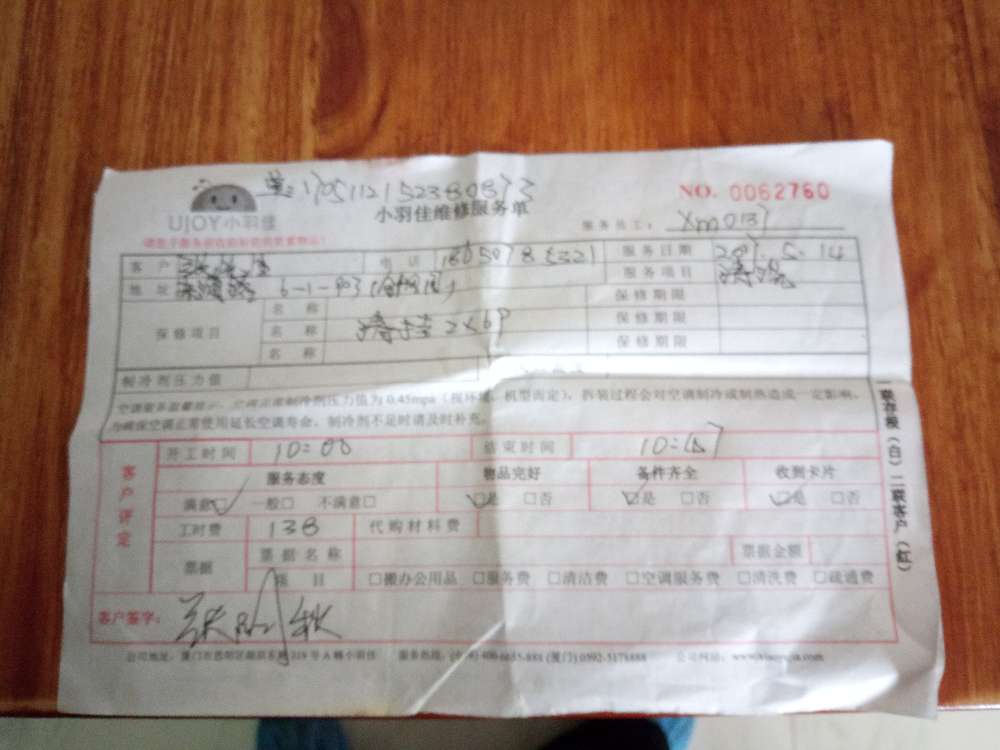 170511215238087
UJOY小羽佳
NO. 0062760
小羽佳维修服务单
服务员工: Xm0137
客户 电话 服务日期 2017.5.14
地址 6-1-903 服务项目 清洗
保修项目 名称 保修期限
名称 清洗 保修期限
名称 保修期限
制冷剂压力值
空调服务温馨提示:空调正常制冷剂压力值为0.45mpa(视环境、机型而定),拆装过程会对空调制冷或制热造成一定影响,
为确保空调正常使用延长空调寿命,制冷剂不足时请及时补充。
一联存根(白)二联客户(红)
客户评定
开工时间 10:00 结束时间
服务态度 物品完好 备件齐全 收到卡片
满意□ 一般□ 不满意□ □是 □否 □是 □否 □是 □否
工时费 138 代购材料费
票据 票据名称 票据金额
项目 □搬办公用品 □服务费 □清洁费 □空调服务费 □清洗费 □疏通费
客户签字:
公司地址:厦门市思明区湖滨东路319号A幢小羽佳 服务热线: (厦门)0592-5178888 公司网站:www.xiaoyujia.com